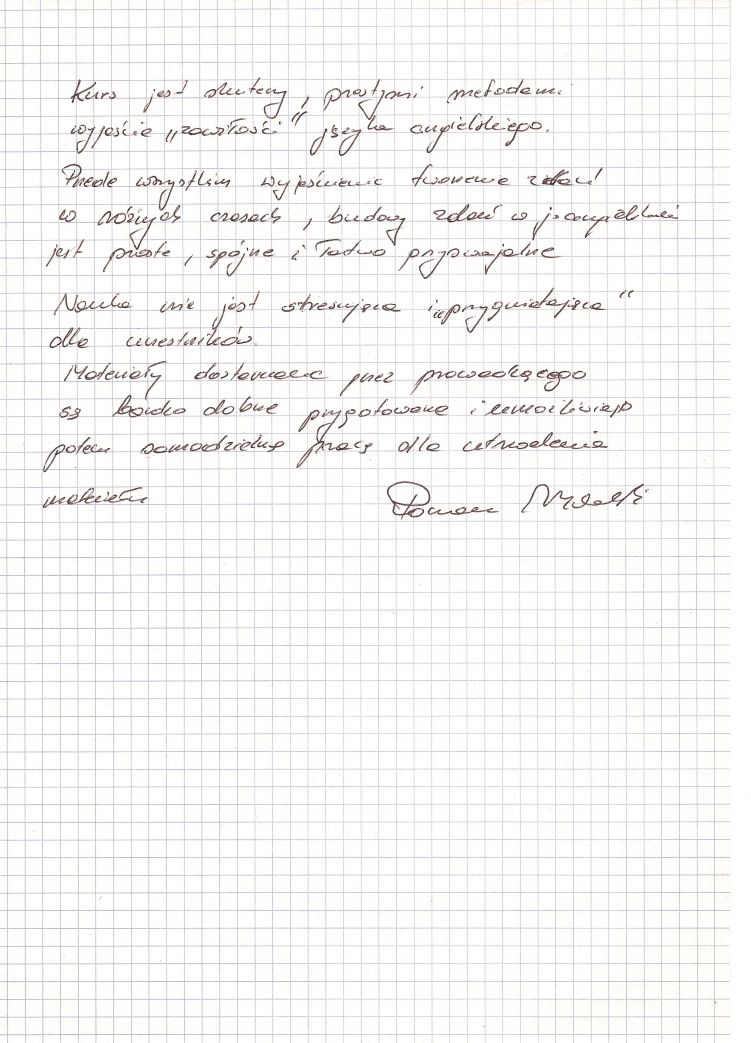 Kurs jest skuteczny, prostymi metodami
wyjaśnia „zawiłości" języka angielskiego.
Przede wszystkim wyjaśnienie tworzenia zdań
w różnych czasach, budowy zdań w j. angielskim
jest proste, spójne i łatwo przyswajalne
Nauka nie jest stresująca i „przygniatająca"
dla uczestników.
Materiały dostarczane przez prowadzącego
są bardzo dobrze przygotowane i umożliwiają
potem samodzielną pracę dla utrwalenia
materiału
Roman